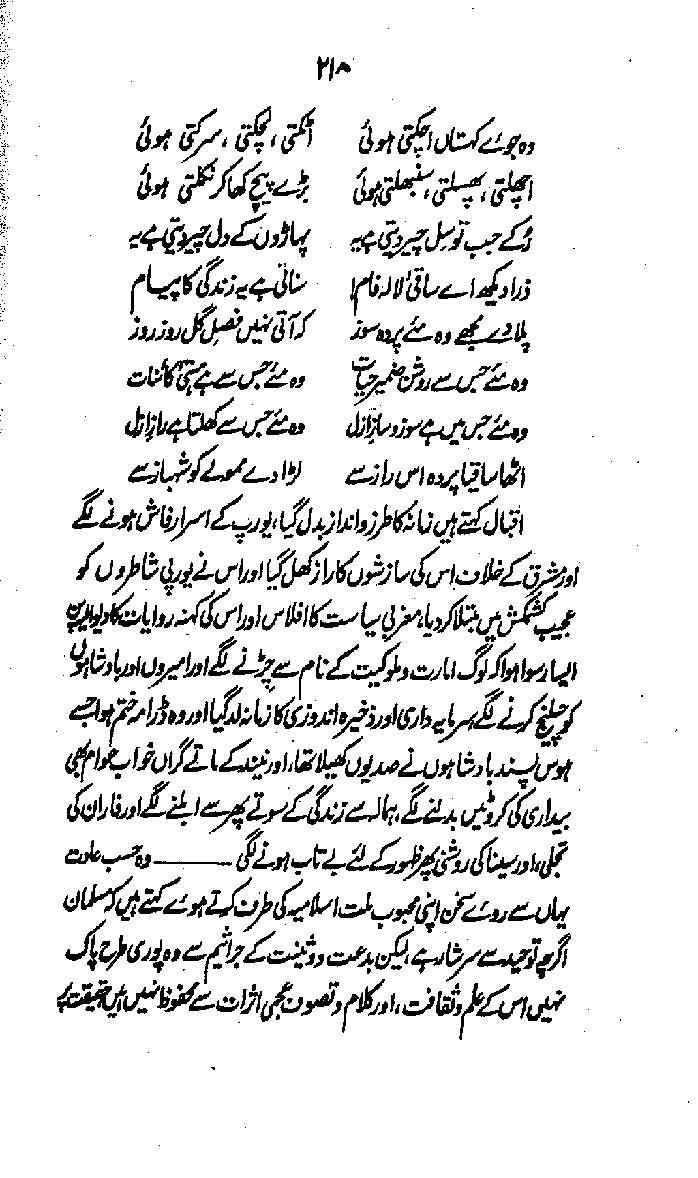 ۲۱۸
وہ جوئے کہستاں اچکتی ہوئی اٹکتی، لچکتی، سرکتی ہوئی
اچھلتی، پھسلتی، سنبھلتی ہوئی بڑے پیچ کھا کر نکلتی ہوئی
رُکے جب تو سِل چیر دیتی ہے یہ پہاڑوں کے دل چیر دیتی ہے یہ
ذرا دیکھ اے ساقیٔ لالہ فام! سناتی ہے یہ زندگی کا پیام
پلا دے مجھے وہ مئے پردہ سوز کہ آتی نہیں فصلِ گل روز روز
وہ مئے جس سے روشن ضمیرِ حیات وہ مئے جس سے ہے مستیٔ کائنات
وہ مئے جس میں ہے سوز و سازِ ازل وہ مئے جس سے کھلتا ہے رازِ ازل
اٹھا ساقیا پردہ اس راز سے لڑا دے ممولے کو شہباز سے
اقبال کہتے ہیں زمانہ کا طرز و انداز بدل گیا، یورپ کے اسرار فاش ہونے لگے
اور مشرق کے خلاف اس کی سازشوں کا راز کھل گیا اور اس نے یورپی شاطروں کو
عجیب کشمکش میں مبتلا کر دیا، مغربی سیاست کا افلاس اور اس کی کہنہ روایات کا دیوالیہ پن
ایسا رسوا ہوا کہ لوگ امارت و ملوکیت کے نام سے چڑنے لگے اور امیروں اور بادشاہوں
کو چیلنج کرنے لگے، سرمایہ داری اور ذخیرہ اندوزی کا زمانہ لد گیا اور وہ ڈرامہ ختم ہوا جسے
ہوس پسند بادشاہوں نے صدیوں کھیلا تھا، اور نیند کے ماتے گراں خواب عوام بھی
بیداری کی کروٹیں بدلنے لگے، ہمالہ سے زندگی کے سوتے پھر سے ابلنے لگے اور فاران کی
تجلی، اور سینا کی روشنی پھر ظہور کے لئے بے تاب ہونے لگی ——— وہ حسب عادت
یہاں سے روئے سخن اپنی محبوب ملت اسلامیہ کی طرف کرتے ہوئے کہتے ہیں کہ مسلمان
اگرچہ توحید سے سرشار ہے، لیکن بدعت و وثنیت کے جراثیم سے وہ پوری طرح پاک
نہیں اس کے علم و ثقافت، اور کلام و تصوف عجمی اثرات سے محفوظ نہیں ہیں، حقیقت پر